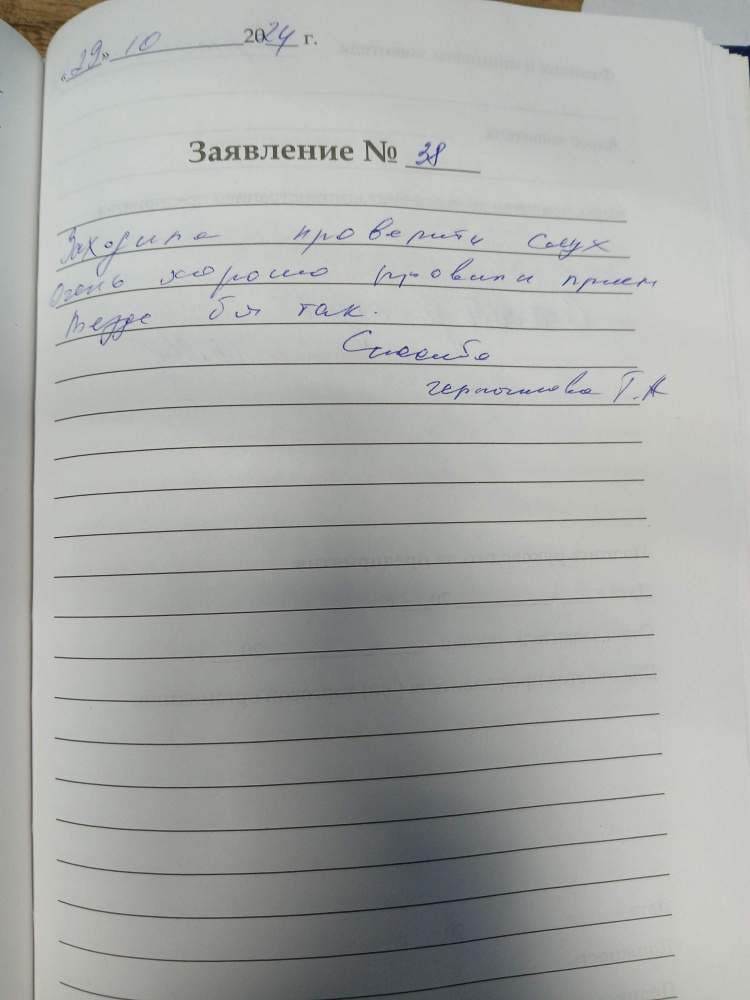 «29» 10 2024 г.
Заявление № 38
Заходила проверить слух
Очень хорошо провели прием
Везде бы так.
Спасибо
Т.А